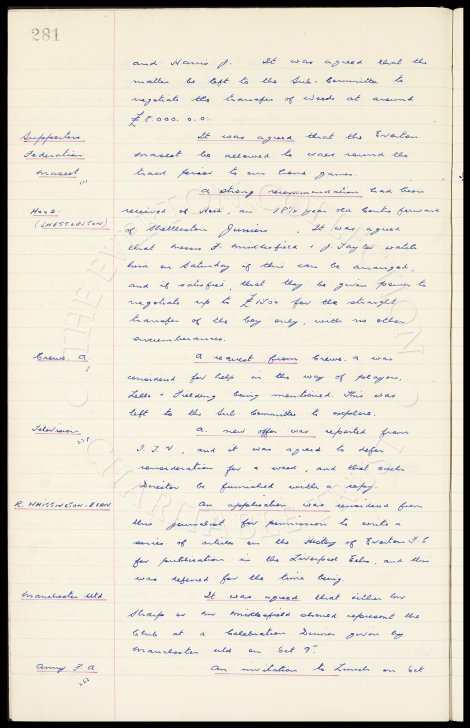 281
and Harris. J. It was agreed that the
matter be left to the Sub-Committee to
negotiate the transfer of Woods at around
£8.000.0.0.
Supporters
Federation
Mascot
It was agreed that the Everton
mascot be allowed to walk round the
track prior to our home games.
Hood.
(SHETTLESTON)
A strong recommendation had been
received of Hood, an 18½ year old Centre forward
of Shettleston Juniors. It was agreed
that Messrs F. Micklesfield & J Taylor watch
him on Saturday if this can be arranged,
and if satisfied, that they be given power to
negotiate up to for the straight
transfer of the boy only, with no other
encumberances.
Crewe. A
A request from Crewe. A was
considered for help in the way of players,
Lello & Fielding being mentioned. This was
left to the Sub Committee to explore.
Television
A new offer was reported from
I.T.V, and it was agreed to defer
consideration for a week, and that each
Director be furnished with a copy.
R. WHITTINGTON-EGAN
An application was considered from
this journalist for permission to write a
series of articles on the History of Everton F.C
for publication in the Liverpool Echo, and this
was deferred for the time being.
Manchester Utd
It was agreed that either Mr
Sharp or Mr Micklesfield should represent the
Club at a Celebration Dinner given by
Manchester Utd on Oct 9th
Army F.A
An invitation to Lunch on Oct
THE EVERTON COLLECTION
CHARITABLE TRUST